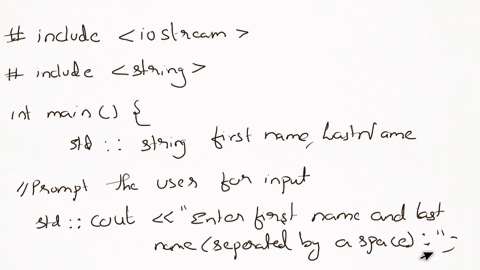 # include <iostream>
# include <string>
int main() {
std :: string first name, LastName
//Prompt the user for input
std :: cout << "Enter first name and last
name (seperated by a space) : ";